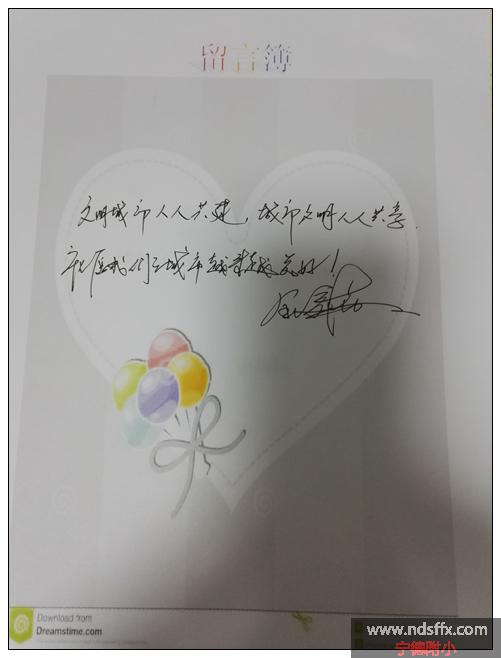 留言簿
文明城市人人共建，城市文明人人共享
祝愿我们的城市越来越美好！
Download from
Dreamstime.com
www.ndsffx.com
宁德附小